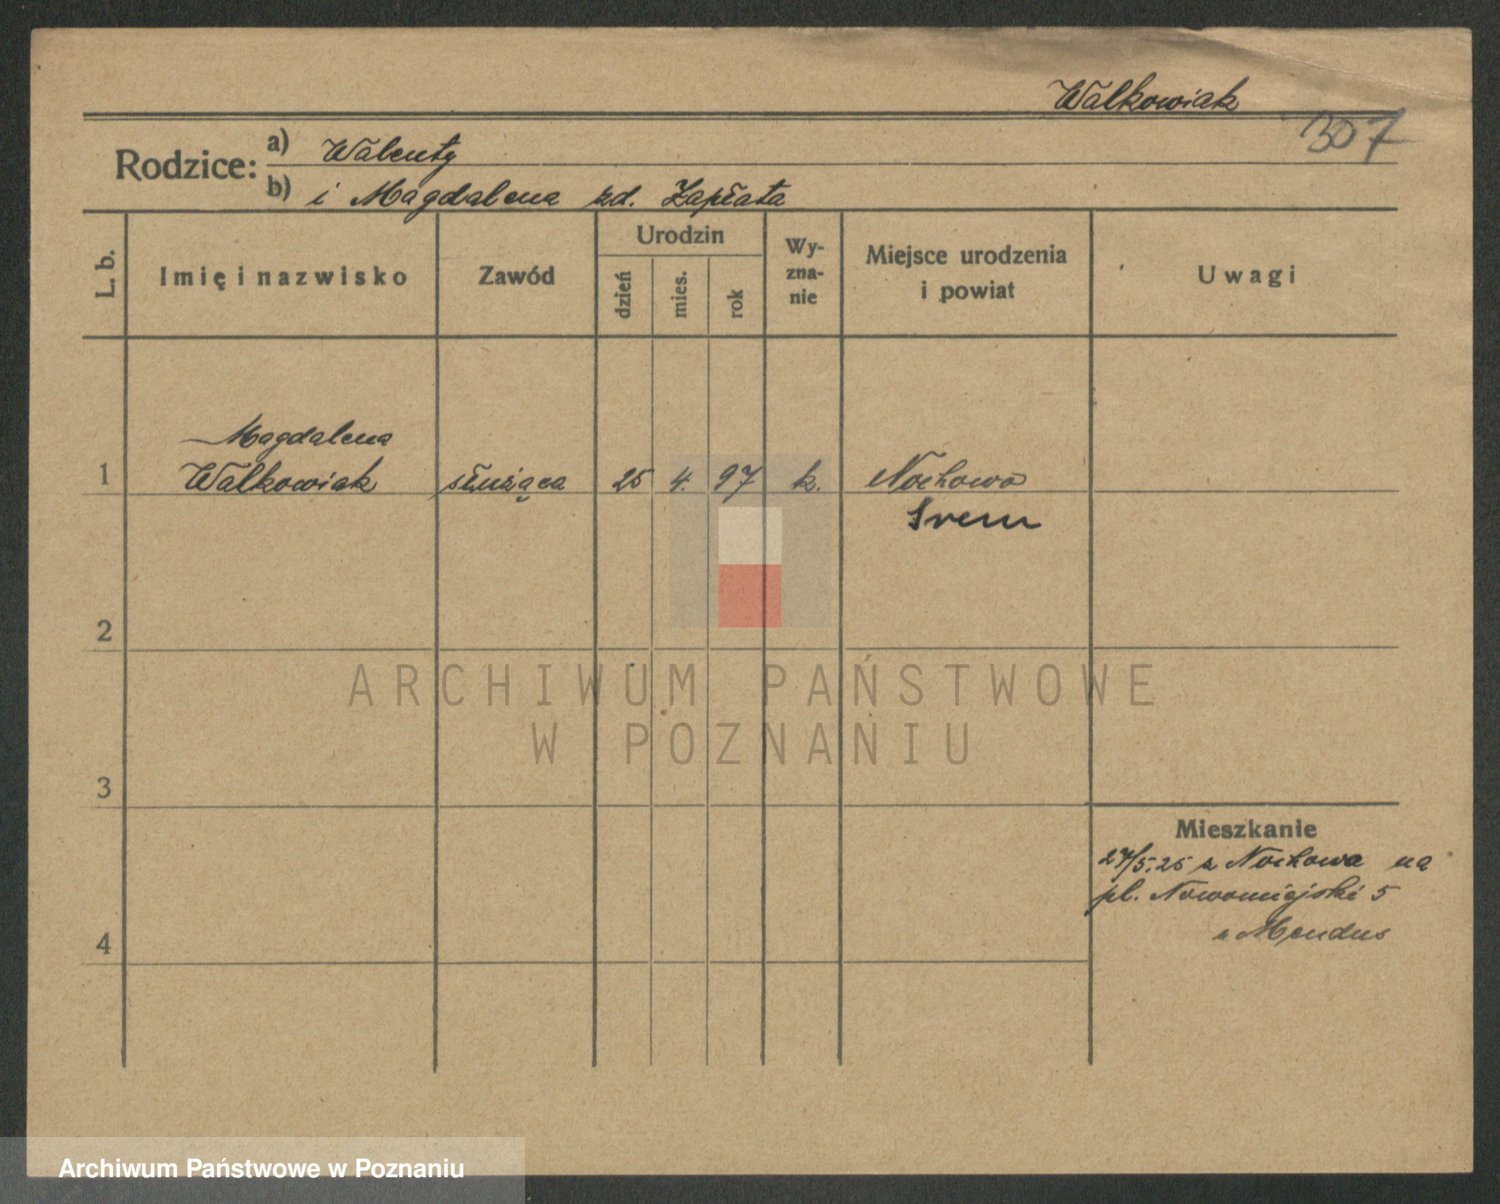 Walkowiak
307
Rodzice: a) Walenty
b) i Magdalena zd. Zapłata
L. b.
Imię i nazwisko
Zawód
Urodzin
dzień
mies.
rok
Wy-
zna-
nie
Miejsce urodzenia
i powiat
Uwagi
Magdalena
1 Walkowiak służąca 25 4. 97 k. Nochowo
Srem
2
3
4
Mieszkanie
27/5.25 z Nochowa na
pl. Nowomiejski 5
z Mendus
ARCHIWUM PAŃSTWOWE
W POZNANIU
Archiwum Państwowe w Poznaniu